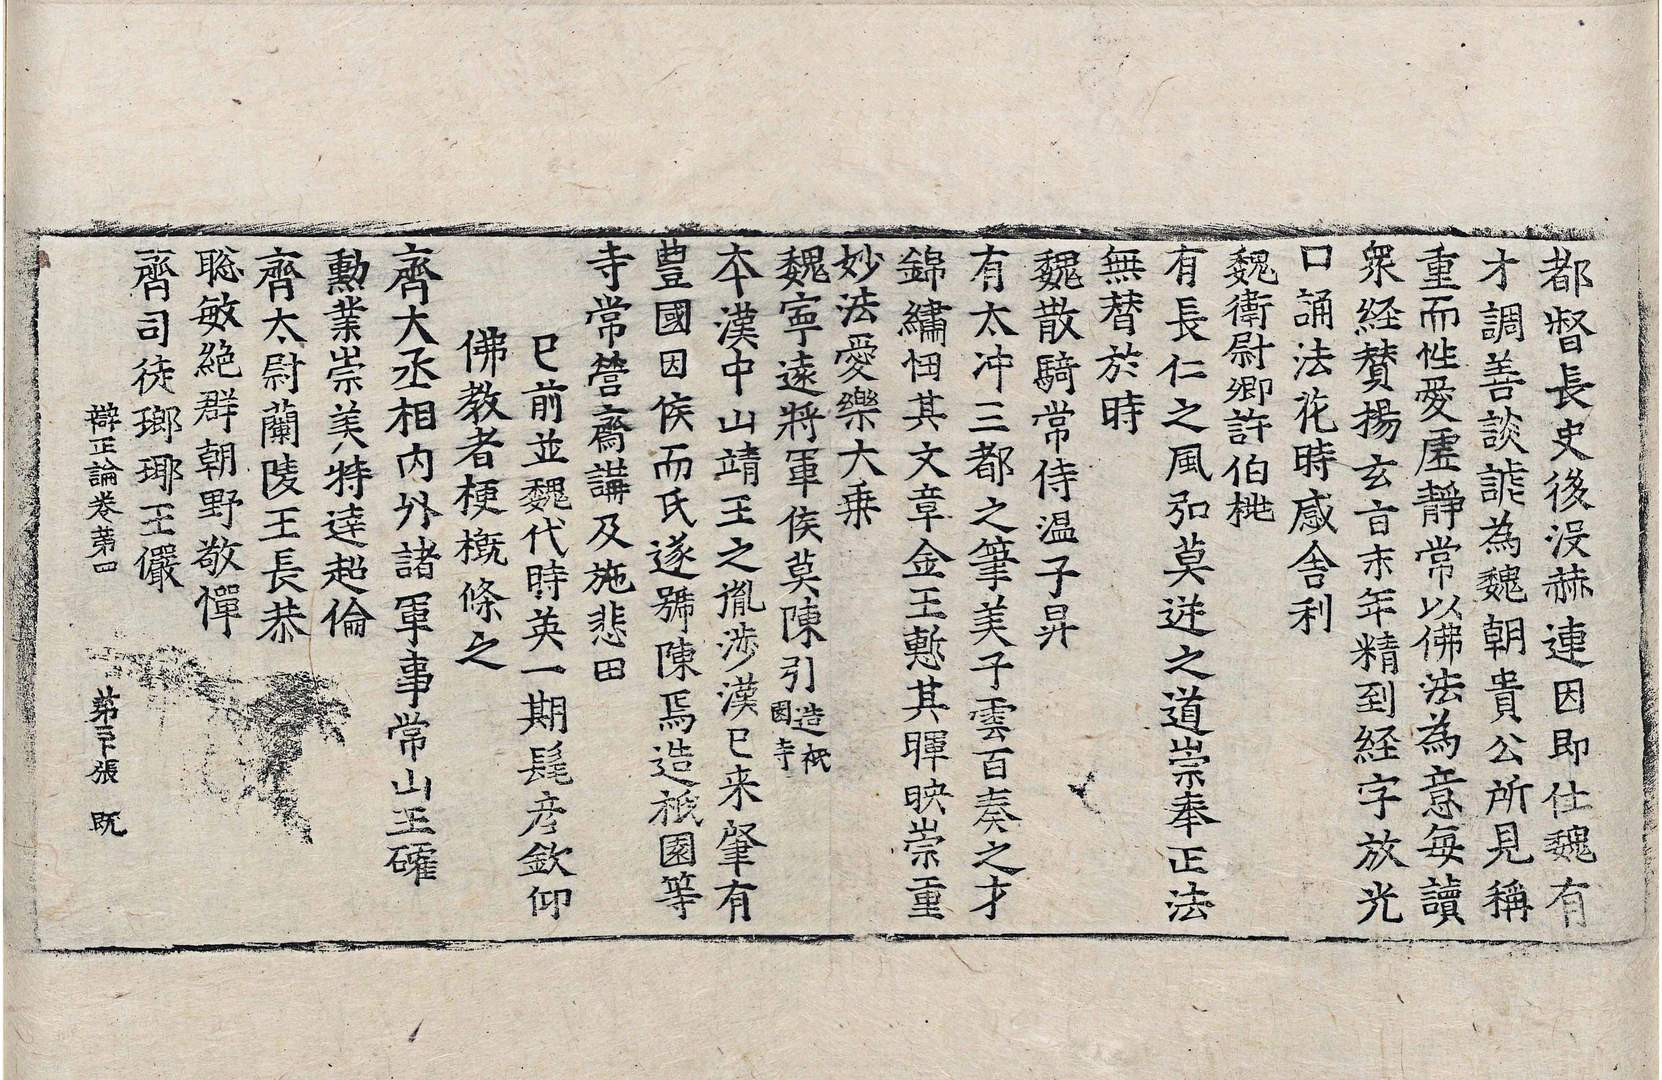 都督長史後没赫連因即仕魏有
才調善談謔為魏朝貴公所見稱
重而性愛虛靜常以佛法為意每讀
衆経賛揚玄旨末年精到経字放光
口誦法花時感舎利
魏衛尉卿許伯桃
有長仁之風弘莫逆之道崇奉正法
無替於時
魏散騎常侍温子昇
有太冲三都之筆美子雲百奏之才
錦繡恛其文章金玉慙其暉映崇重
妙法愛樂大乗
魏寧遠将軍侯莫陳引造祇園寺
本漢中山靖王之胤渉漢已来肇有
豊國因侯而氏遂號陳焉造祇園等
寺常營齋講及施悲田
已前並魏代時英一期髦彦欽仰
佛教者梗概條之
齊大丞相内外諸軍事常山王確
勳業崇美特達超倫
齊太尉蘭陵王長恭
聡敏絶群朝野敬憚
齊司徒瑯琊王儼
辯正論卷苐四 苐 張 既